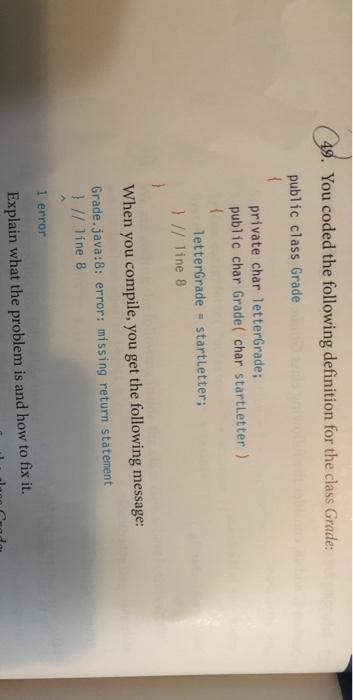 49. You coded the following definition for the class Grade:
public class Grade
{
private char letterGrade;
public char Grade( char startLetter )
{
letterGrade = startLetter;
} // line 8
}
When you compile, you get the following message:
Grade.java:8: error: missing return statement
} // line 8
^
1 error
Explain what the problem is and how to fix it.